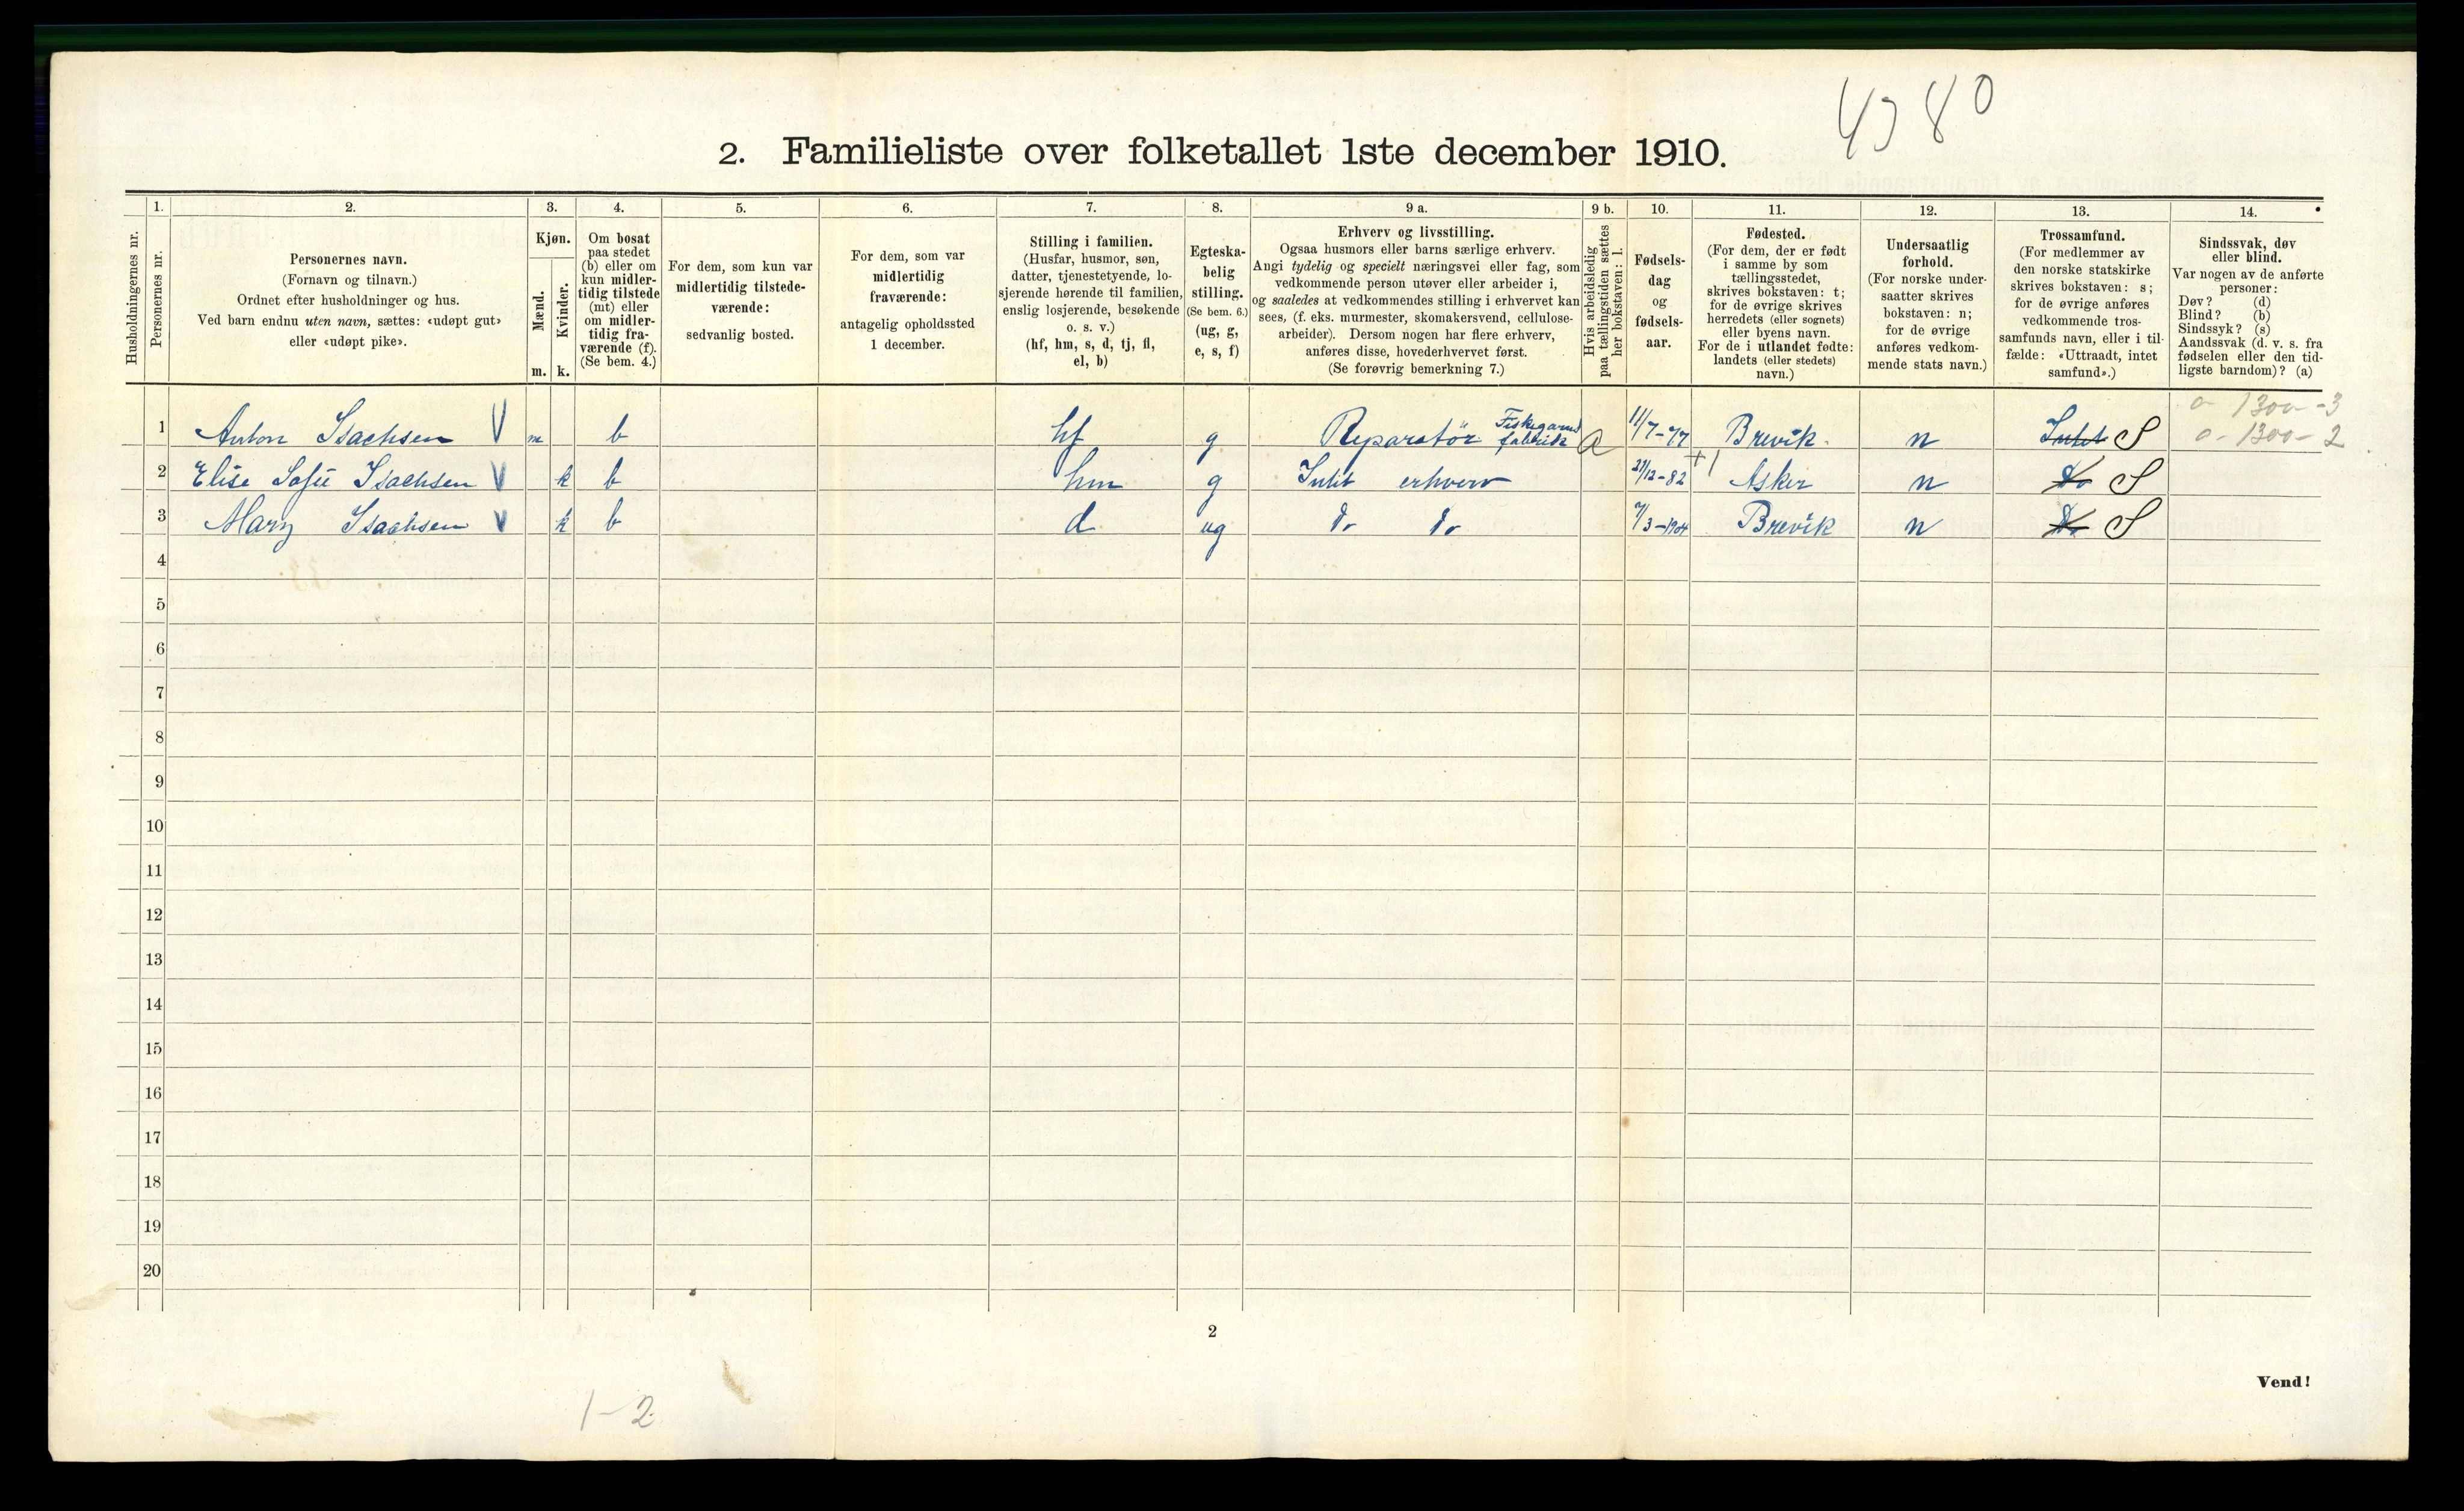 4980
2. Familieliste over folketallet 1ste december 1910.
Husholdningernes nr.
1.
Personernes nr.
2.
Personernes navn.
(Fornavn og tilnavn.)
Ordnet efter husholdninger og hus.
Ved barn endnu uten navn, sættes: «udøpt gut»
eller «udøpt pike».
3.
Kjøn.
Mænd.
Kvinder.
m. k.
4.
Om bosat
paa stedet
(b) eller om
kun midler-
tidig tilstede
(mt) eller
om midler-
tidig fra-
værende (f).
(Se bem. 4.)
5.
For dem, som kun var
midlertidig tilstede-
værende:
sedvanlig bosted.
6.
For dem, som var
midlertidig
fraværende:
antagelig opholdssted
1 december.
7.
Stilling i familien.
(Husfar, husmor, søn,
datter, tjenestetyende, lo-
sjerende hørende til familien,
enslig losjerende, besøkende
o. s. v.)
(hf, hm, s, d, tj, fl,
el, b)
8.
Egteska-
belig
stilling.
(Se bem. 6.)
(ug, g,
e, s, f)
9 a.
Erhverv og livsstilling.
Ogsaa husmors eller barns særlige erhverv.
Angi tydelig og specielt næringsvei eller fag, som
vedkommende person utøver eller arbeider i,
og saaledes at vedkommendes stilling i erhvervet kan
sees, (f. eks. murmester, skomakersvend, cellulose-
arbeider). Dersom nogen har flere erhverv,
anføres disse, hovederhvervet først.
(Se forøvrig bemerkning 7.)
9 b.
Hvis arbeidsledig
paa tællingstiden sættes
her bokstaven: l.
10.
Fødsels-
dag
og
fødsels-
aar.
11.
Fødested.
(For dem, der er født
i samme by som
tællingsstedet,
skrives bokstaven: t;
for de øvrige skrives
herredets (eller sognets)
eller byens navn.
For de i utlandet fødte:
landets (eller stedets)
navn.)
12.
Undersaatlig
forhold.
(For norske under-
saatter skrives
bokstaven: n;
for de øvrige
anføres vedkom-
mende stats navn.)
13.
Trossamfund.
(For medlemmer av
den norske statskirke
skrives bokstaven: s;
for de øvrige anføres
vedkommende tros-
samfunds navn, eller i til-
fælde: «Uttraadt, intet
samfund».)
14.
Sindssvak, døv
eller blind.
Var nogen av de anførte
personer:
Døv? (d)
Blind? (b)
Sindssyk? (s)
Aandssvak (d. v. s. fra
fødselen eller den tid-
ligste barndom)? (a)
0 - 1300 - 3
1 Anton Isachsen V m b hf g Reparatör Fiskegarnsfabrik a 11/7-77 Brevik. n Intet S 0 - 1300 - 2
2 Elise Sofie Isachsen V k b hm g Intet erhverv 27/12-82 +1 Asker n Do S
3 Mary Isachsen V k b d ug Do Do 7/3-1904 Brevik n Do S
4
5
6
7
8
9
10
11
12
13
14
15
16
17
18
19
20
2
Vend!
1-2